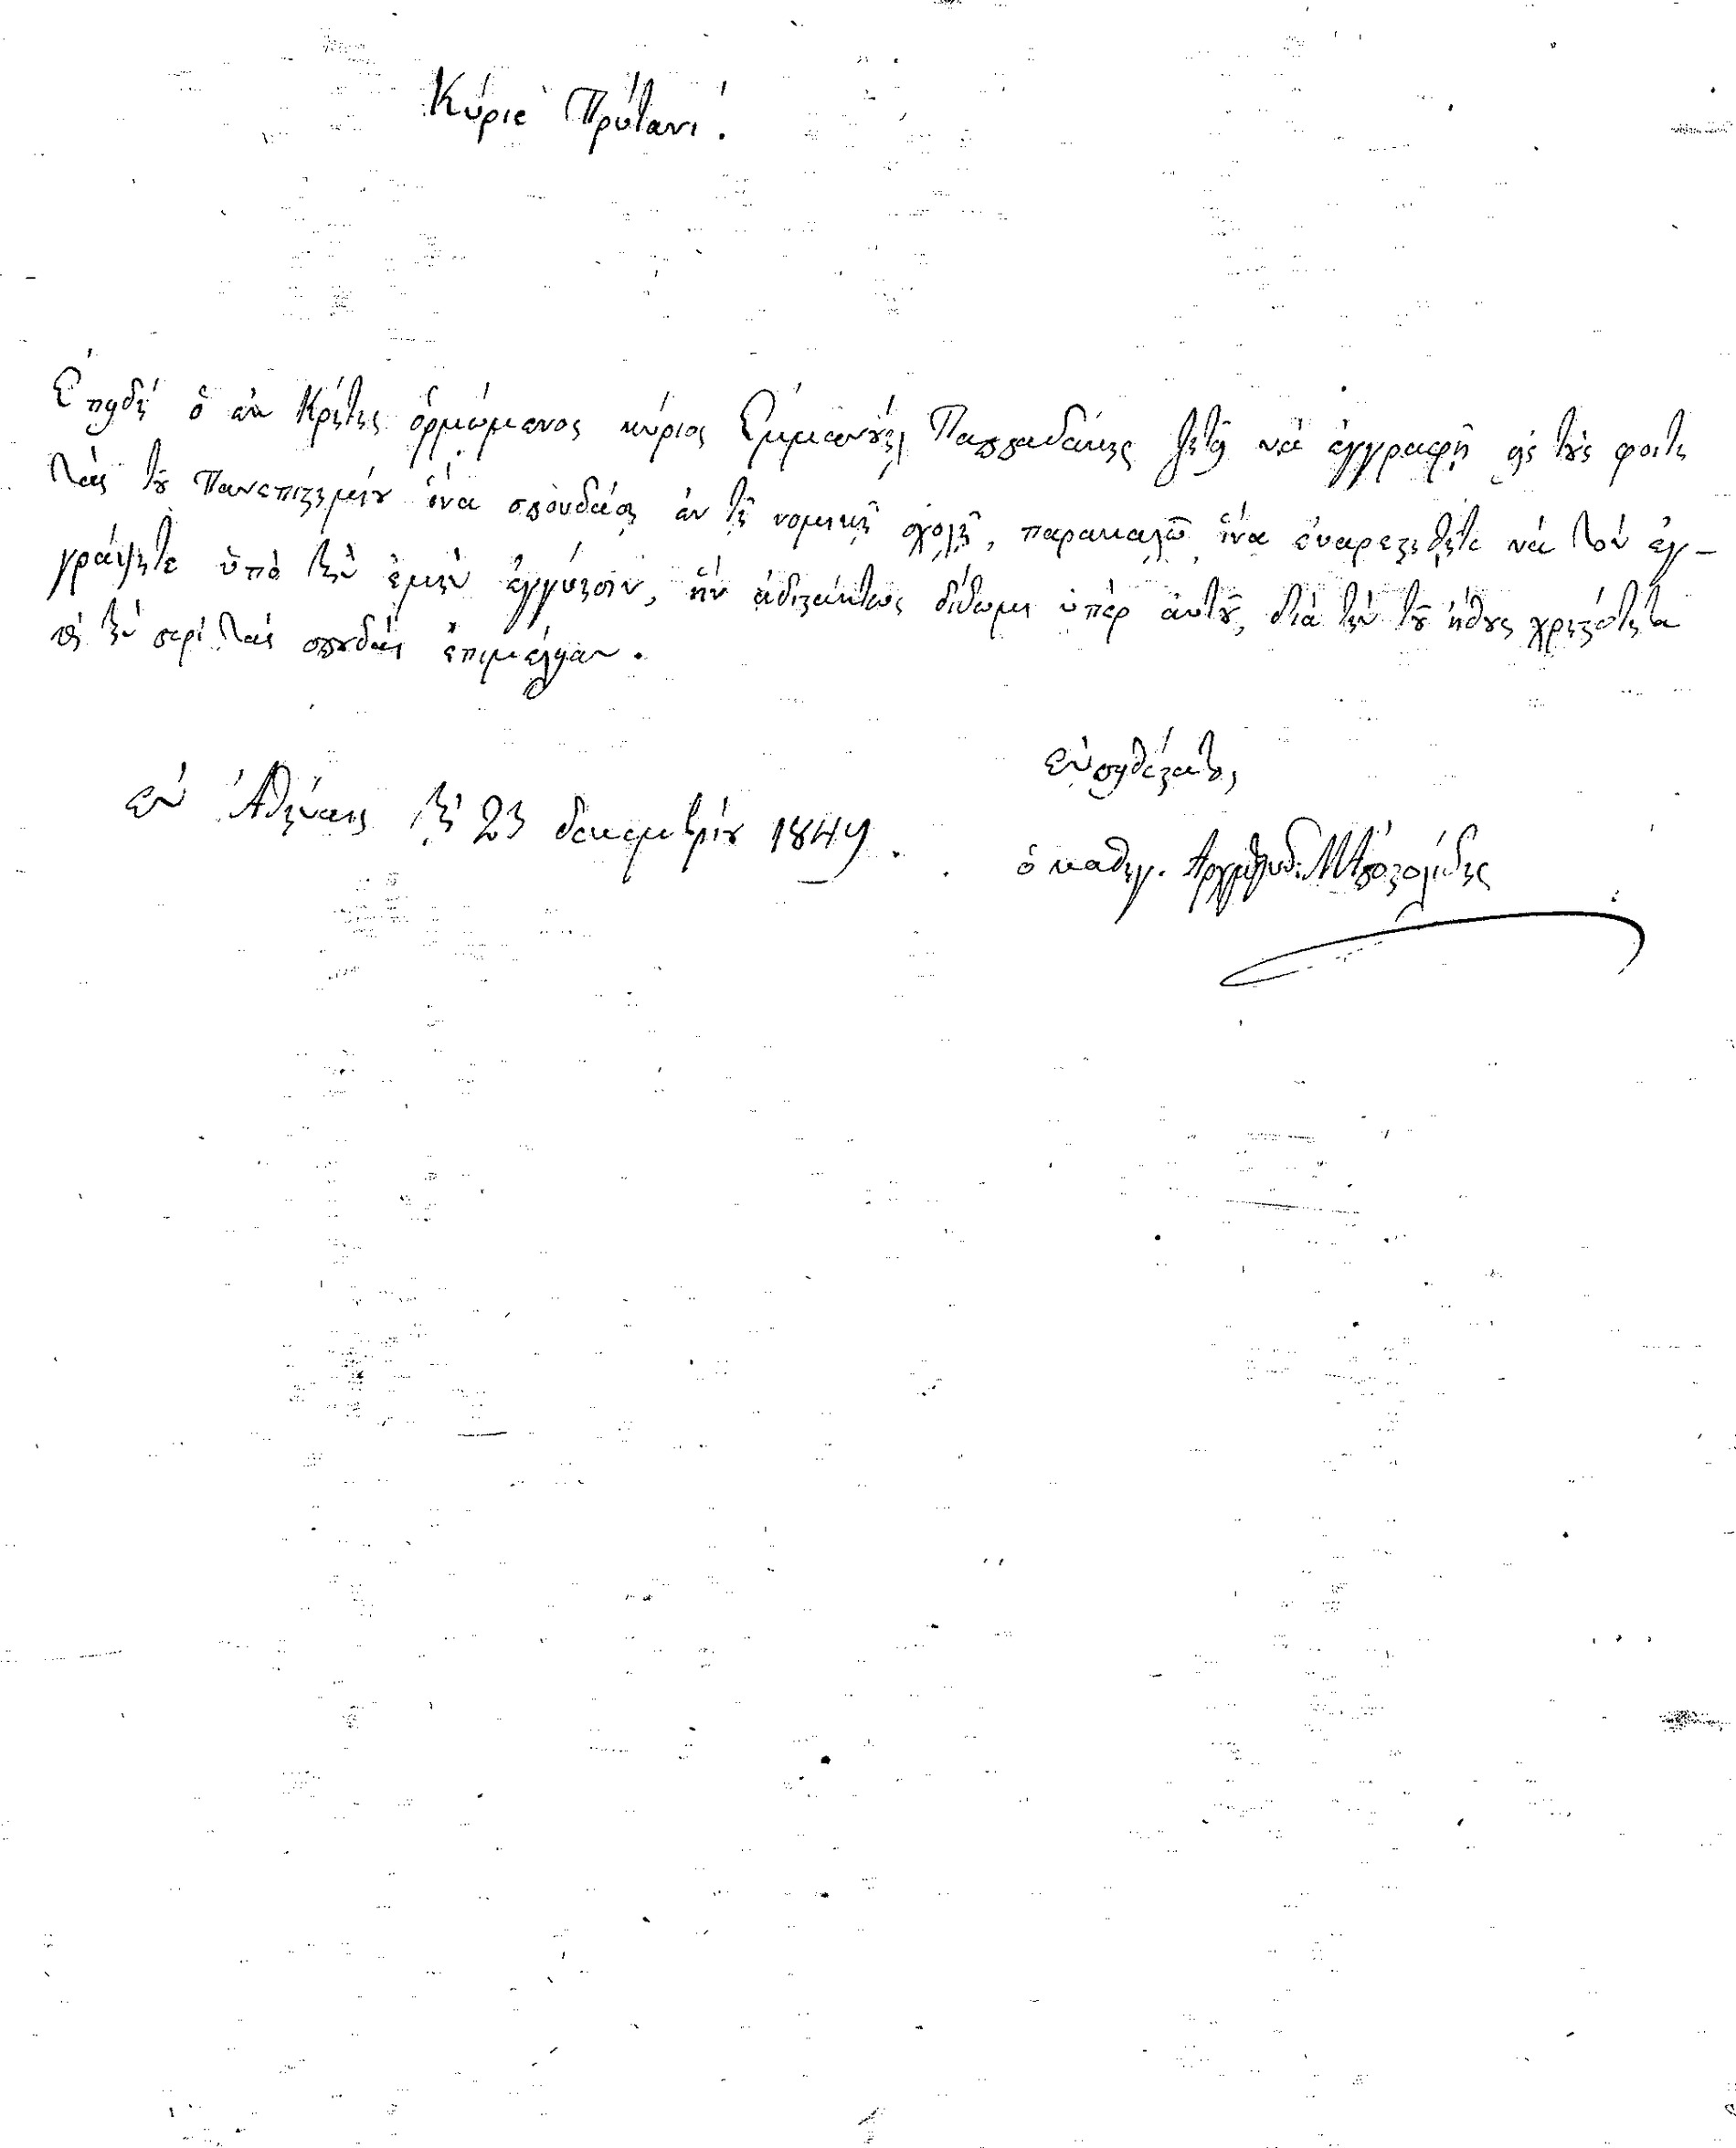 Κύριε Πρύτανι!
Ἐπειδή ὁ ἐκ Κρήτης ὁρμώμενος κύριος Ἐμμανουήλ Παππαδάκης ζητεῖ νὰ ἐγγραφῇ εἰς τοὺς φοιτη
τὰς τοῦ Πανεπιστημίου ἵνα σπουδάσῃ ἐν τῇ νομικῇ σχολῇ, παρακαλῶ ἵνα εὐαρεστηθῆτε νὰ τὸν ἐγ-
γράψητε ὑπὸ τὴν ἐμὴν ἐγγύησιν, ἣν ἀδιστάκτως δίδωμι ὑπὲρ αὐτοῦ, διὰ τὴν τοῦ ἤθους χρηστότητα
καὶ τὴν περὶ τὰς σπουδὰς ἐπιμέλειαν.
εὐπειθέστατος
ἐν Ἀθήναις τῇ 23 δεκεμβρίου 1849.
ὁ καθηγ.